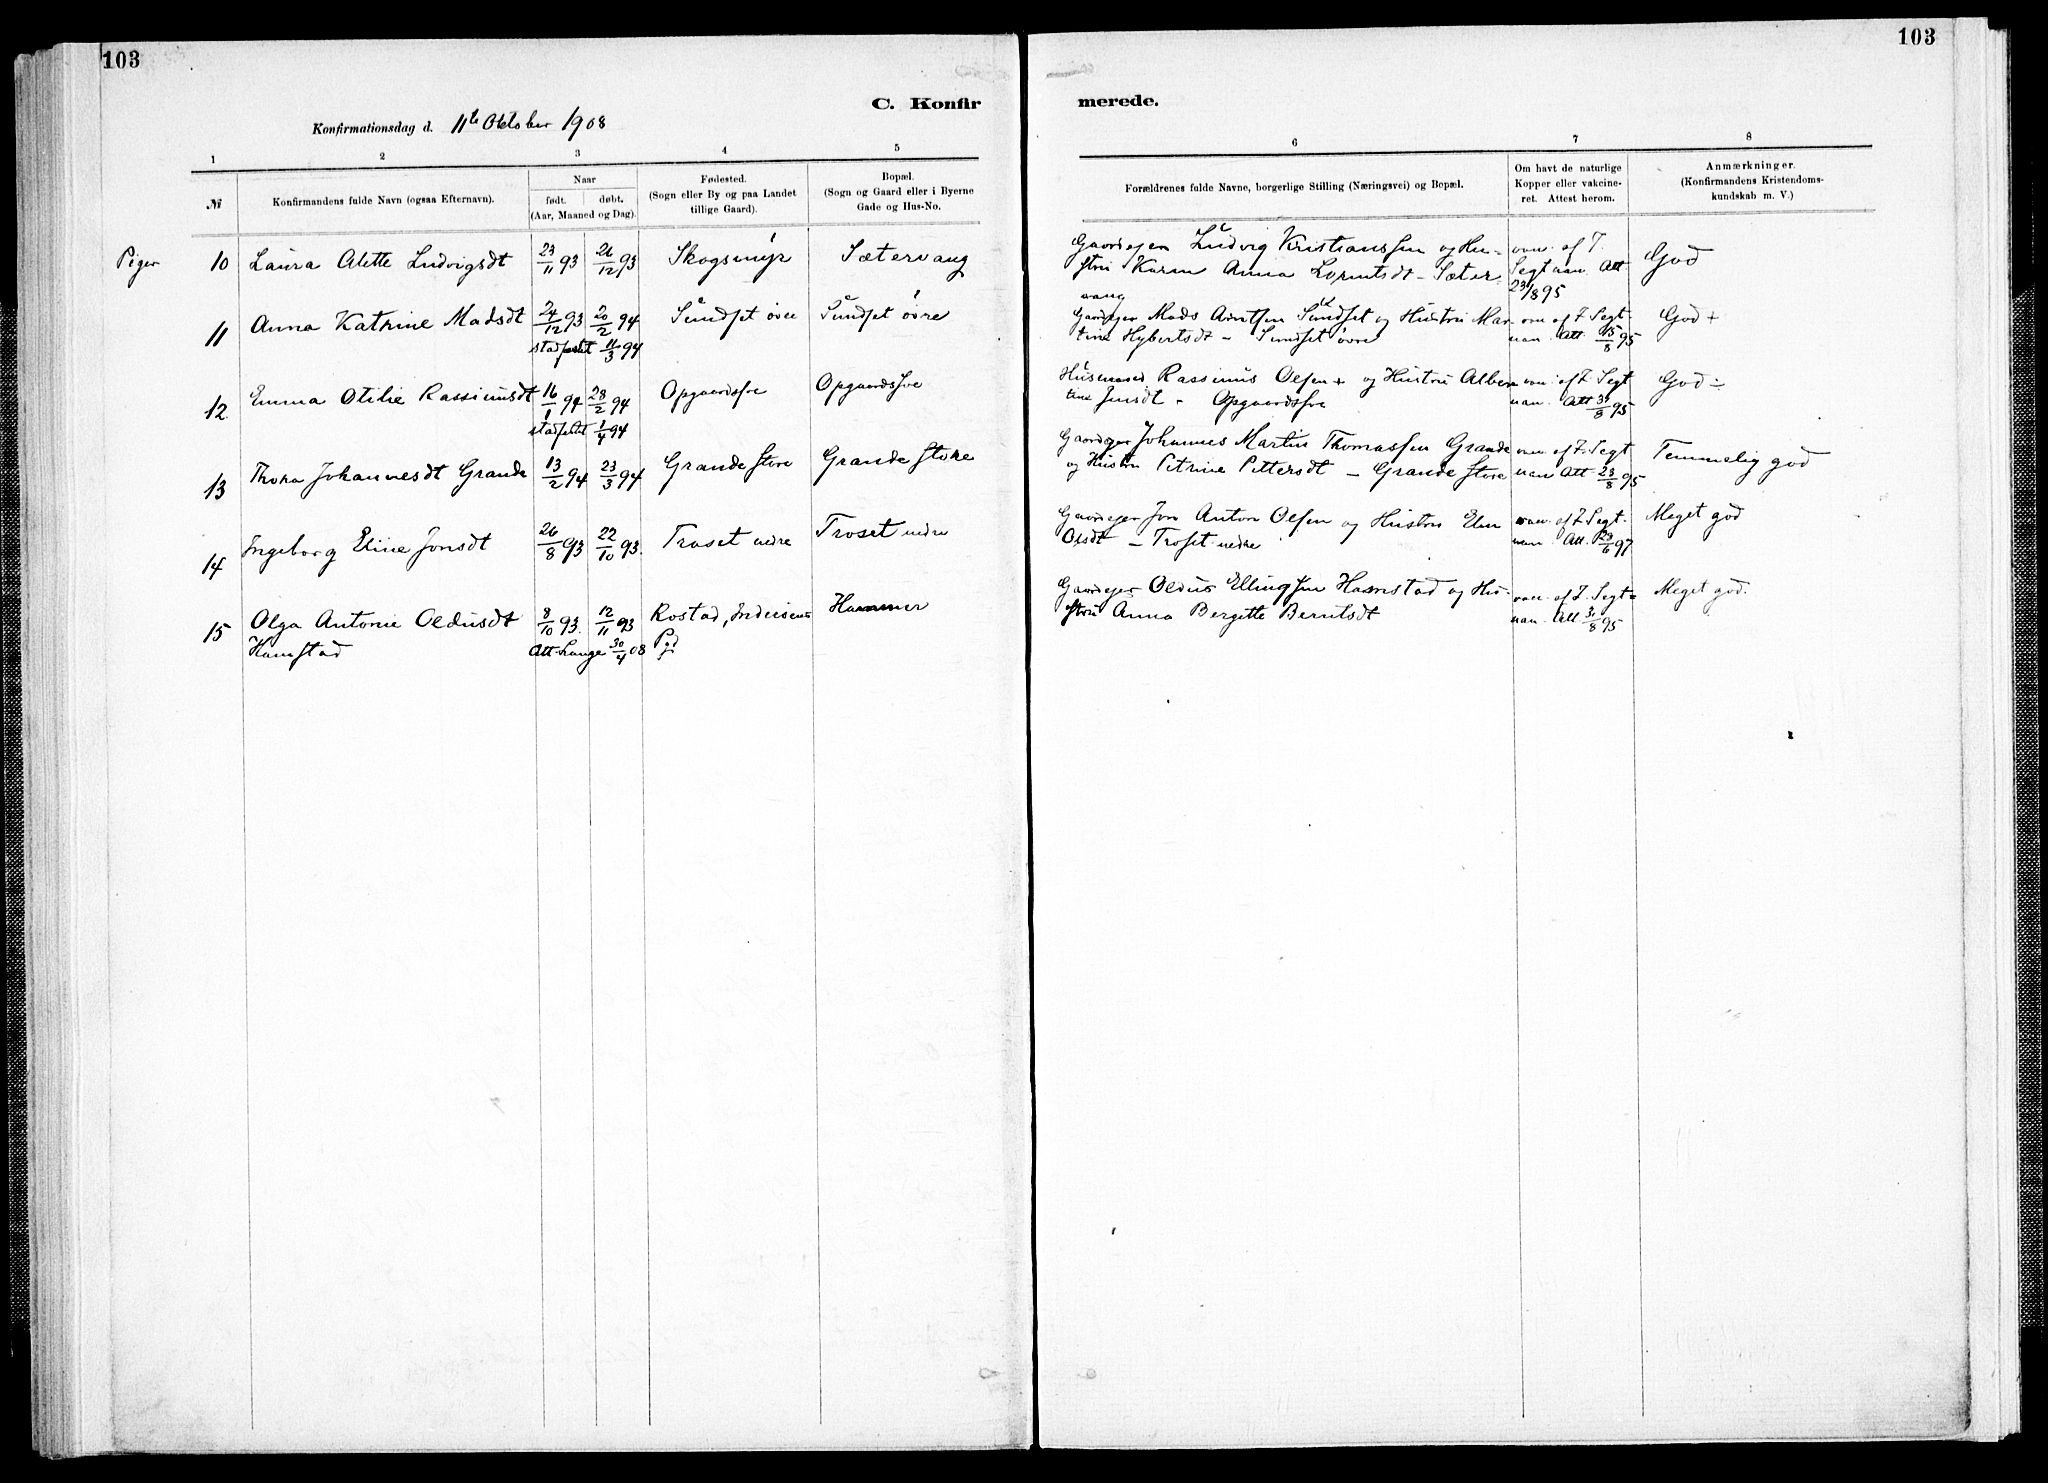 103
103
C. Konfir
merede.
Konfirmationsdag d. 11te Oktober 1908
1
2
3
4
5
6
7
8
№
Konfirmandens fulde Navn (ogsaa Efternavn).
Naar
født. døbt.
(Aar, Maaned og Dag).
Fødested.
(Sogn eller By og paa Landet
tillige Gaard).
Bopæl.
(Sogn og Gaard eller i Byerne
Gade og Hus-No.
Forældrenes fulde Navne, borgerlige Stilling (Næringsvei) og Bopæl.
Om havt de naturlige
Kopper eller vakcine-
ret. Attest herom.
Anmærkninger.
(Konfirmandens Kristendoms-
kundskab m. V.)
Piger
10 Laura Alette Ludvigsdt 23/11 93 26/12 93 Skogsmyr Sætervang
Gaardejer Ludvig Kristianssen og Hu-
strü Karen Anna Lorntsdt - Sæter
vang
vac. af T.
Segtnan Att.
23/8 95
God
11 Anna Katrine Madsdt 24/12 93 20/2 94 Sundset övre Sundset övre
stadfestet 11/3 94
Gaardejer Mads Arntsen Sundset og Hüstrü Mar-
tine Hybertsdt - Sundset övre
vac. af T. Segt-
nan. Att. 15/8 95
God +
12 Emma Otilie Rassimusdt 16/1 94 28/2 94 Opgaardsfve Opgaardsfve
stadfestet 1/4 94
Husmand Rassimus Olsen + og Hüstrü Alber
tine Jensdt - Opgaardsfve
vac. af T. Segt
nan. Att 31/8 95
God ÷
13 Thora Johannesdt Grande 13/2 94 23/3 94 Grande store Grande store
Gaardejer Johannes Martin Thomassen Grande
og Hüstrü Petrine Pettersdt - Grande store
vac. af T. Segt
nan Att 23/8 95
Temmelig god
14 Ingeborg Eline Jonsdt 26/8 93 22/10 93. Troset nedre Troset nedre
Gaardejer Jon Anton Olsen og Hustrü Elen
Olsdt - Troset nedre
vac. af T. Segt-
nan. Att. 23/6 97
Meget god
15 Olga Antonie Oldusdt 8/10 93. 12/11 93 Rostad, Inderöens Hammer
Hamstad Att. Lange 30/4 08 Pgd
Gaardejer Oldus Ellingsen Hamstad og Hu-
strü Anna Bergitte Berntsdt
vac. af T. Segt-
nan. Att 31/8 95
Meget god.